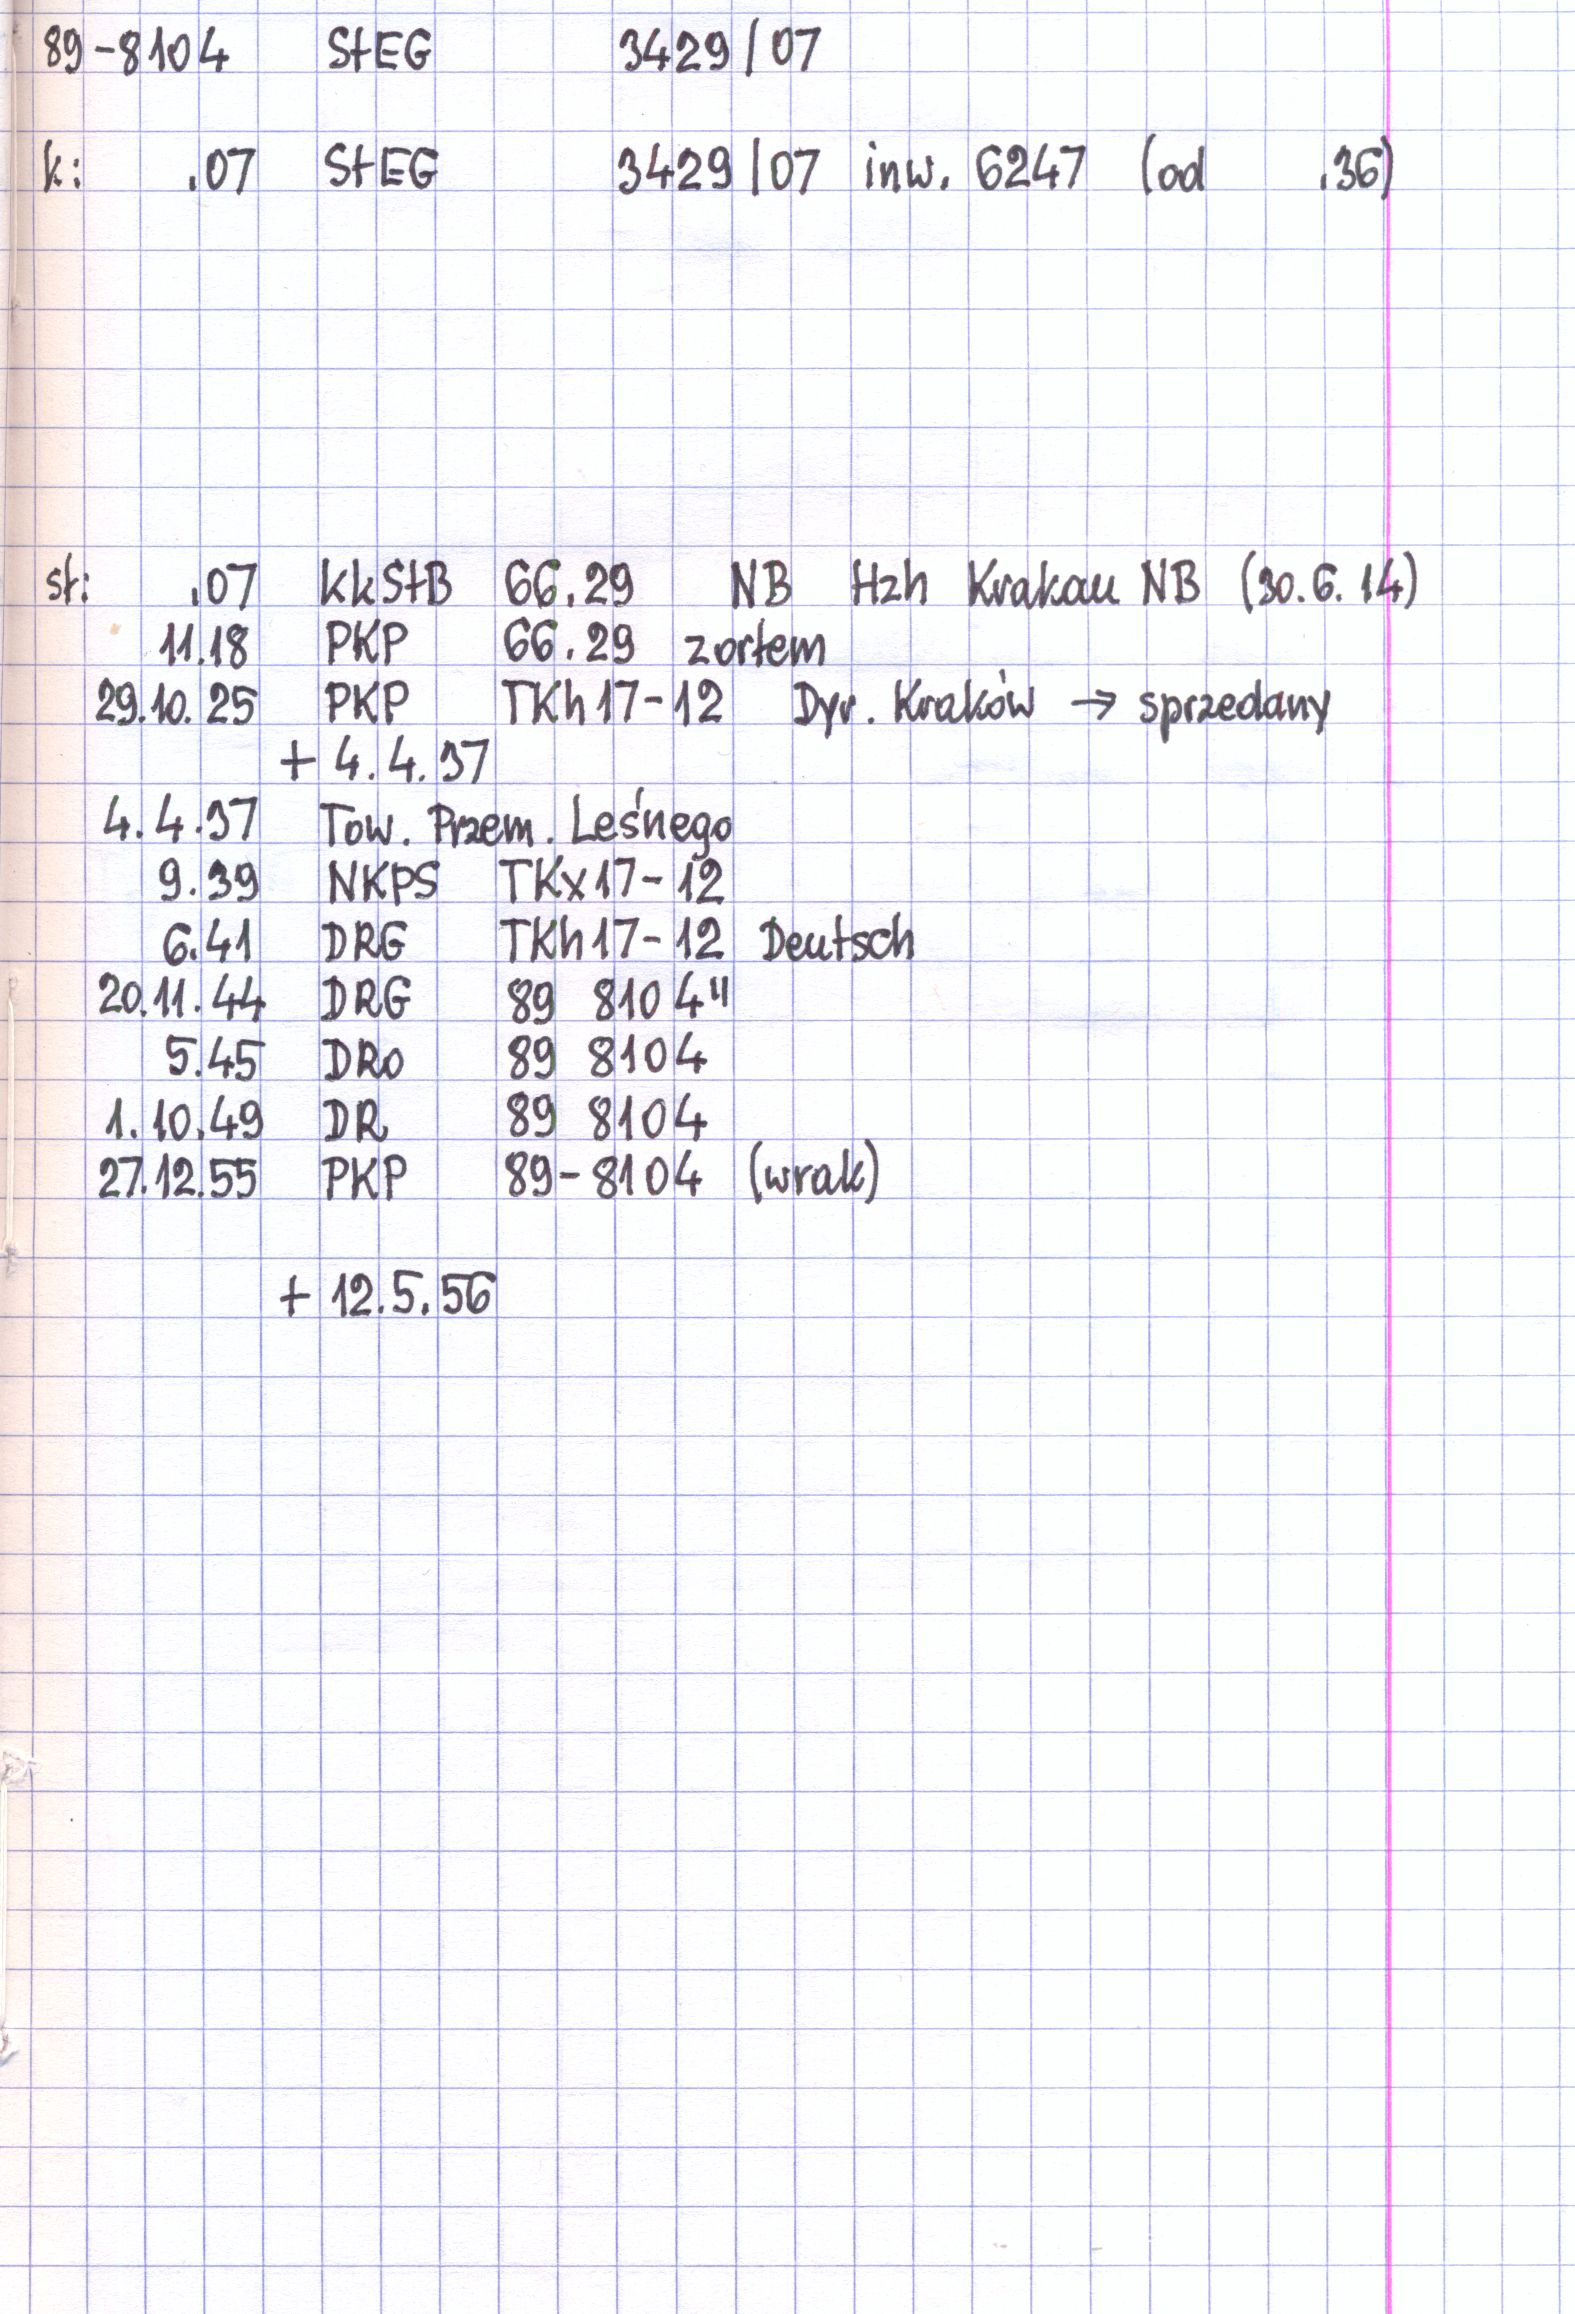 89-8104 StEG 3429/07
k: .07 StEG 3429/07 inw. 6247 (od .36)
st: .07 kkStB 66.29 NB Hzh Krakau NB (30.6.14)
11.18 PKP 66.29 z ortem
29.10.25 PKP TKh17-12 Dyr. Kraków → sprzedany
+ 4.4.37
4.4.37 Tow. Przem. Leśnego
9.39 NKPS TKx17-12
6.41 DRG TKh17-12 Deutsch
20.11.44 DRG 89 8104"
5.45 DRo 89 8104
1.10.49 DR 89 8104
27.12.55 PKP 89-8104 (wrak)
+ 12.5.56